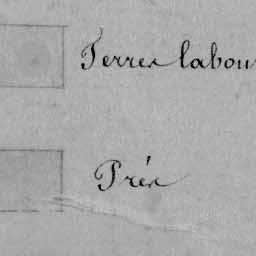 Terres labou
Prés